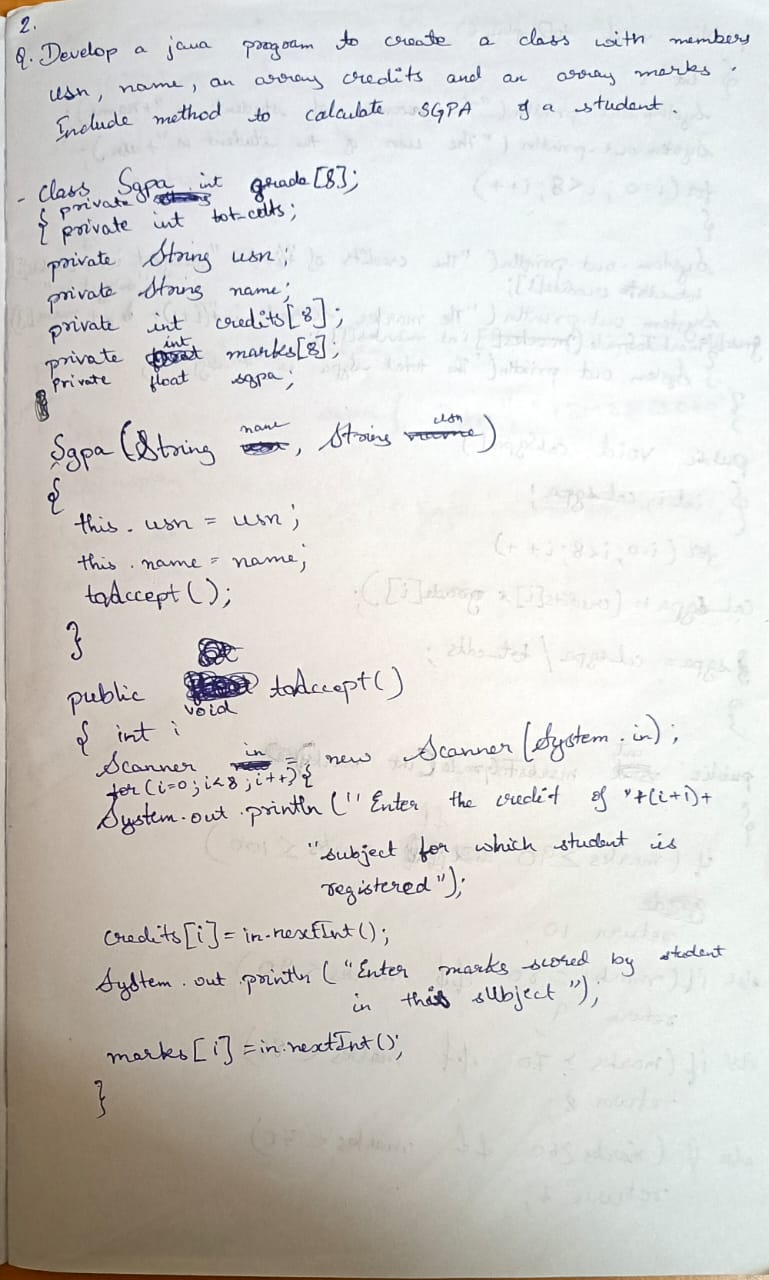 2.
Q. Develop a java program to create a class with members
usn, name, an array credits and an array marks.
Include method to calculate SGPA of a student.
- class Sgpa
{ private int grade[8];
private int tot-cdts;
private String usn;
private String name;
private int credits[8];
private int marks[8];
private float sgpa;
Sgpa (String name, String usn)
{
this.usn = usn;
this.name = name;
toAccept();
}
public void toAccept()
{ int i
Scanner in = new Scanner (System.in);
for(i=0;i<8;i++){
System.out.println("Enter the credit of "+(i+1)+
"subject for which student is
registered");
credits[i]=in.nextInt();
System.out.println("Enter marks scored by student
in this subject");
marks[i]=in.nextInt();
}